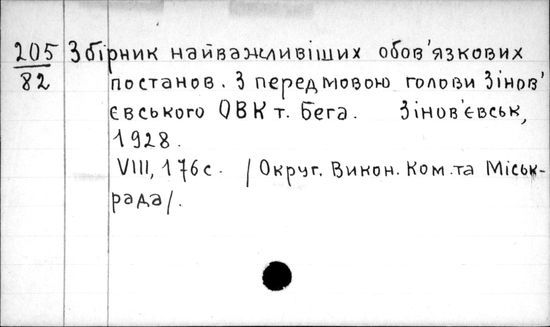 205
82
Збірник найважливіших обов'язкових
постанов. З передмовою голови Зінов'
євського ОВК т. Бега. Зінов'євськ,
1928.
VIII, 176с. /Округ. Викон. Ком. та Міськ-
рада/.